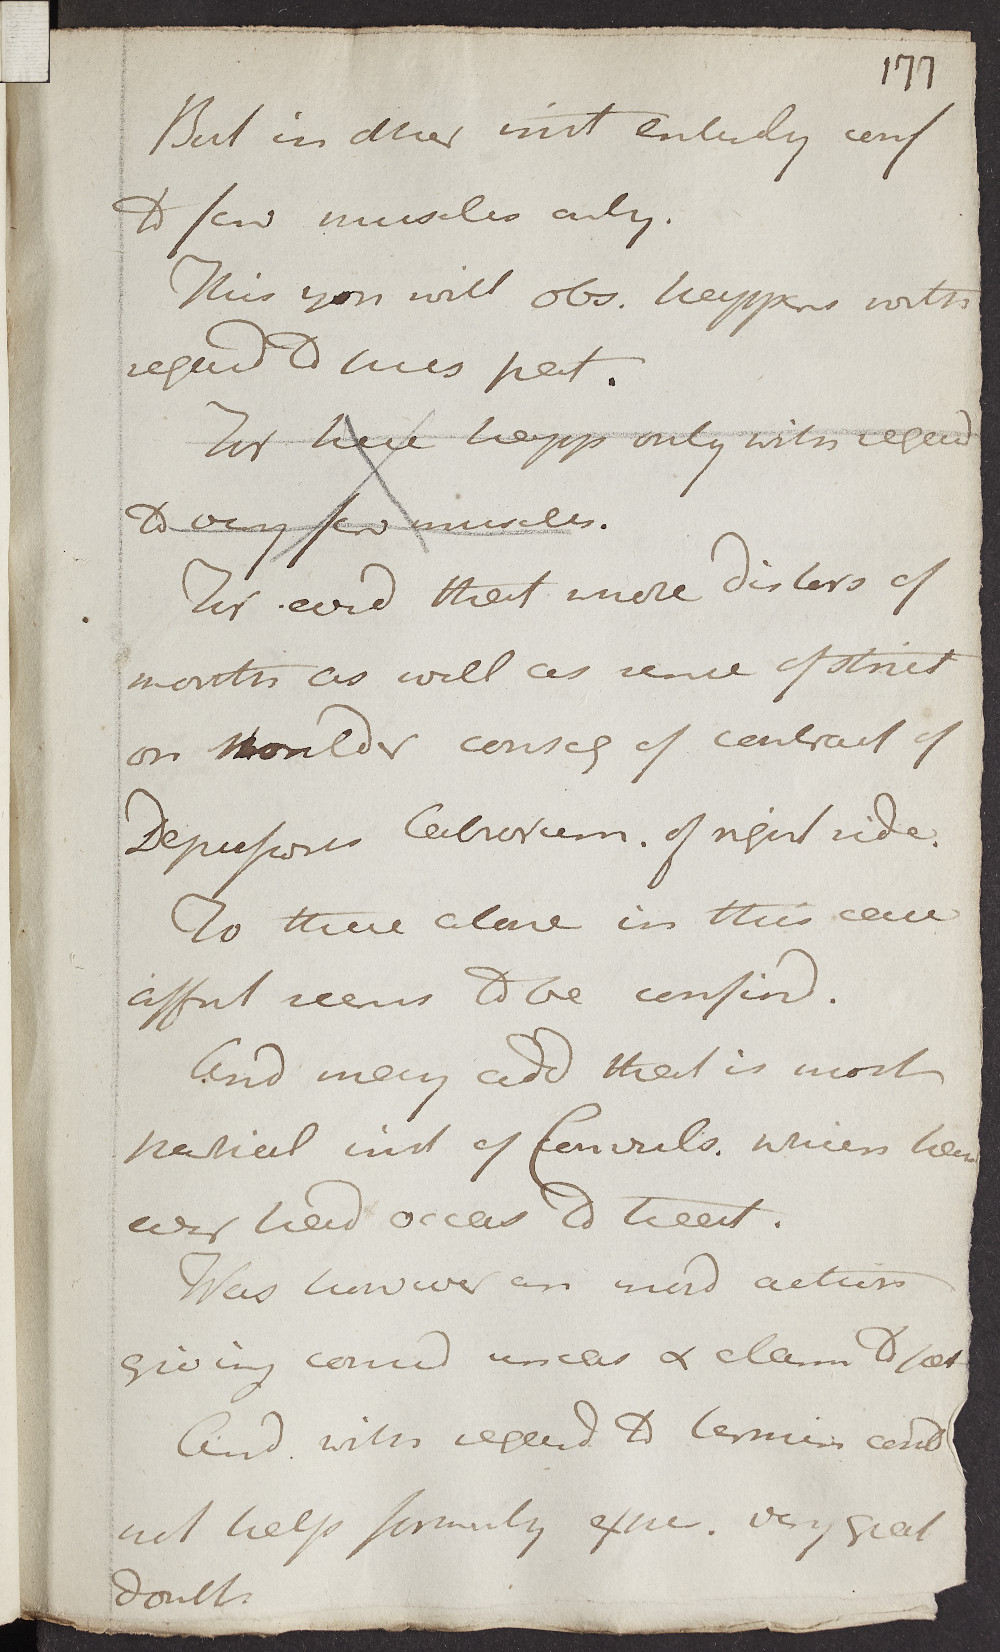 177
But in other inst entirely conf
to few muscles only.
This you will obs. happens with
regard to this pat.
For here happ only with regard
to very few muscles.
For evid that mere distors of
mouth as well as sense of strict
on shoulder conseq of contract of
Depressores Labiorum. of right side.
To these alone in this case
affect seems to be confind.
And may add that is most
partial inst of Convuls. which have
ever had occas to treat.
Was however an morb action
giving consid uneas & alarm to pat
And with regard to termin could
not help formerly expr. very great
doubts